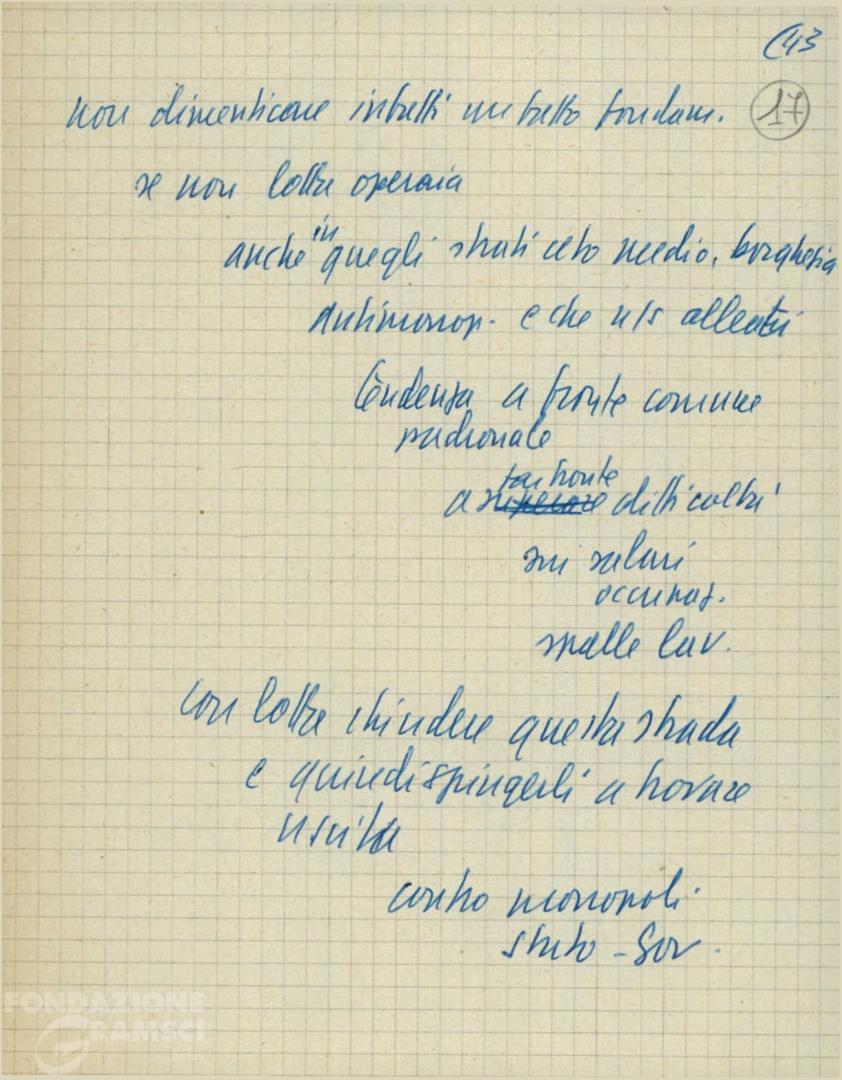 (43
17
non dimenticare infatti un fatto fondam.
se non lotta operaia
anche in quegli strati ceto medio, borghesia
antimonop. e che n/s alleati
tendenza a fronte comune
padronale
far fronte
a superare difficoltà
sui salari
occupaz.
spalle lav.
con lotta chiudere questa strada
e quindi spingerli a trovare
uscita
contro monopoli
stato - Gov.
FONDAZIONE
GRAMSCI